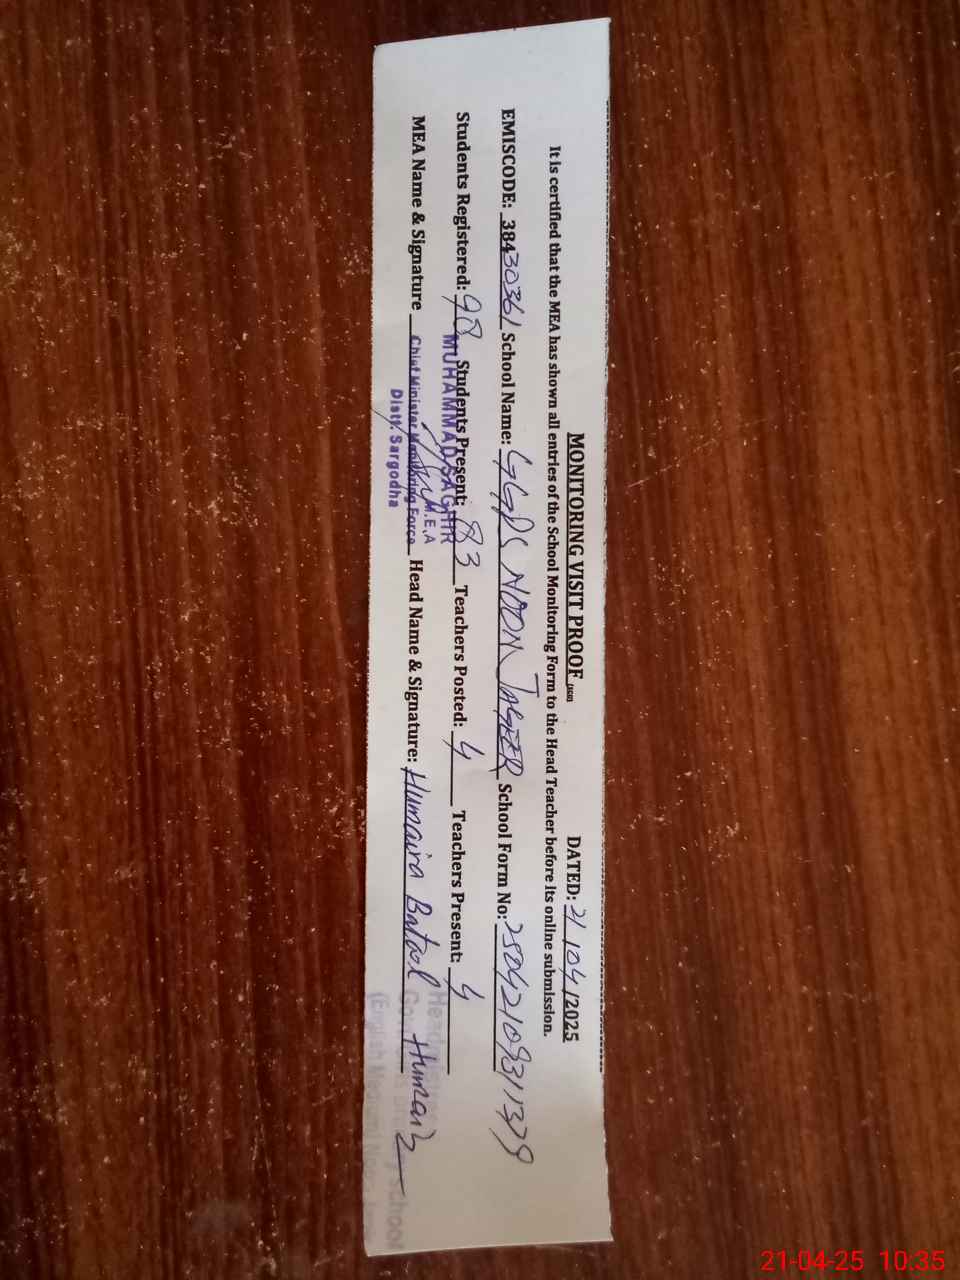 MONITORING VISIT PROOF DATED: 21/04/2025
It is certified that the MEA has shown all entries of the School Monitoring Form to the Head Teacher before its online submission.
EMISCODE: 38430361 School Name: GGPS NOON JAGEER School Form No: 25042109311379
Students Registered: 90 Students Present: 83 Teachers Posted: 4 Teachers Present: 4
MUHAMMAD SAGHIR
M.E.A
MEA Name & Signature Chief Minister Monitoring Force Head Name & Signature: Humaira Batool Humaira
Distt. Sargodha
Headmistress
School
(English Medium)
21-04-25 10:35